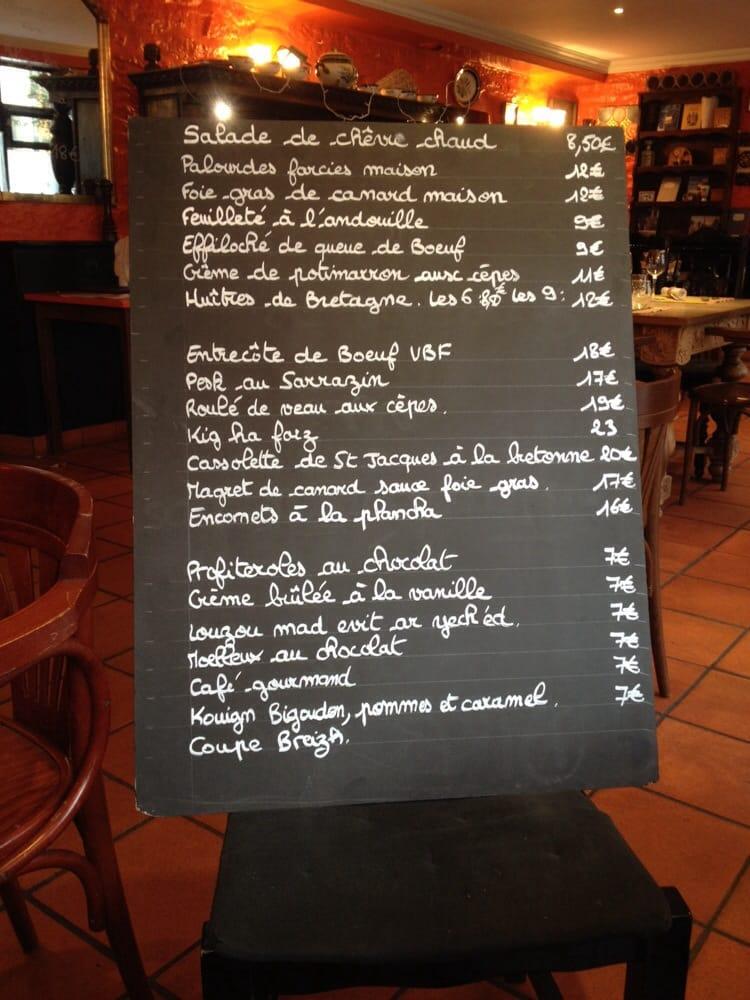 Salade de chêvre chaud 8,50€
Palourdes farcies maison 12€
Foie gras de canard maison 12€
Feuilleté à l'andouille 9€
Effiloché de queue de Boeuf 9€
Crème de potimarron aux cèpes 11€
Huîtres de Bretagne. Les 6: 8,50€ les 9: 12€
Entrecôte de Boeuf VBF 18€
Pesk au Sarrazin 17€
Roulé de veau aux cèpes. 19€
Kig ha farz 23
Cassolette de St Jacques à la bretonne 20€
Magret de canard sauce foie gras. 17€
Encornets à la plancha 16€
Profiteroles au chocolat 7€
Crème brûlée à la vanille 7€
Louzou mad evit ar yec'hed. 7€
Moelleux au chocolat 7€
Café gourmand 7€
Kouign Bigouden, pommes et caramel. 7€
Coupe BreizH.